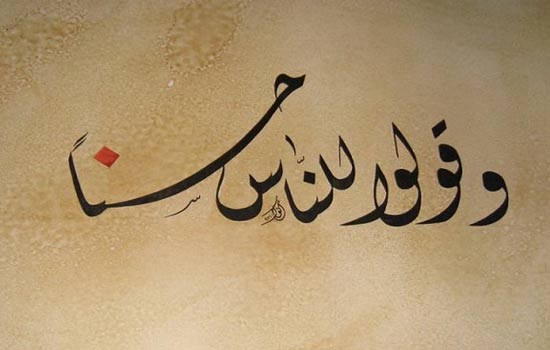 وقولوا للنّاس حسناً